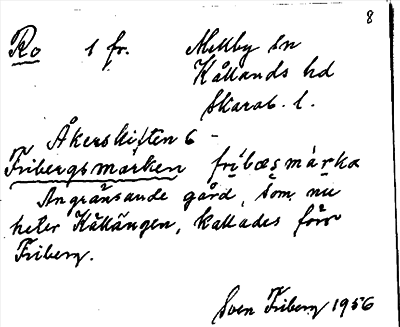 8
Ro 1 fr. Mellby sn
Kållands hd
Skarab. l.
Åkerskiften 6 -
Fribergsmarken frìbæsmàrka
Angränsande gård, som nu
heter Källängen, kallades förr
Friberg.
Sven Friberg 1956